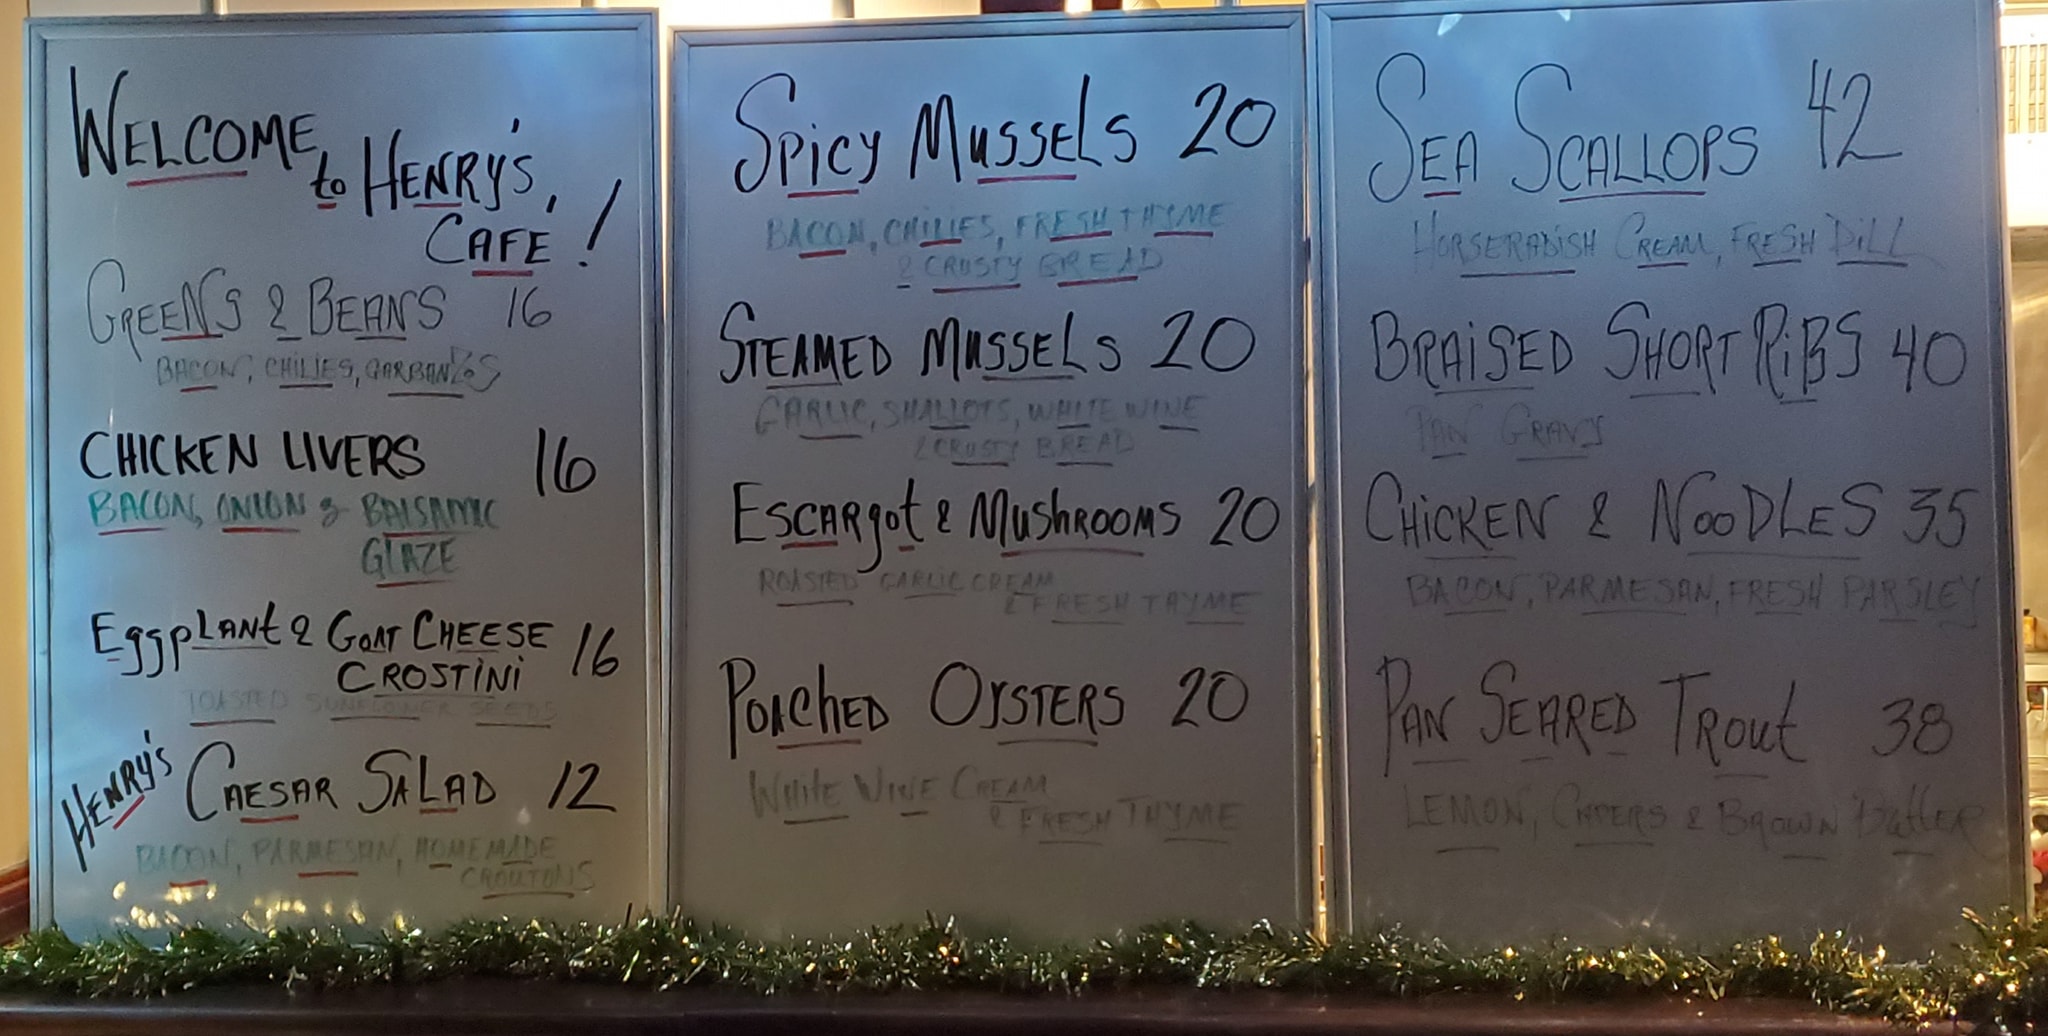 WELCOME
to HENRY'S,
CAFÉ!
GREENS & BEANS 16
BACON, CHILIES, GARBANZOS
CHICKEN LIVERS 16
BACON, ONION & BALSAMIC
GLAZE
Eggplant & GOAT CHEESE
CROSTINI 16
TOASTED SUNFLOWER SEEDS
HENRY'S CAESAR SALAD 12
BACON, PARMESAN, HOMEMADE
CROUTONS
SPICY MUSSELS 20
BACON, CHILIES, FRESH THYME
& CRUSTY BREAD
STEAMED MUSSELS 20
GARLIC, SHALLOTS, WHITE WINE
& CRUSTY BREAD
ESCARgot & MUSHROOMS 20
ROASTED GARLIC CREAM
& FRESH THYME
POACHED OYSTERS 20
WHITE WINE CREAM
& FRESH THYME
SEA SCALLOPS 42
HORSERADISH CREAM, FRESH DILL
BRAISED SHORT RIBS 40
PAN GRAVY
CHICKEN & NOODLES 35
BACON, PARMESAN, FRESH PARSLEY
PAN SEARED TROUT 38
LEMON, CAPERS & BROWN BUTTER